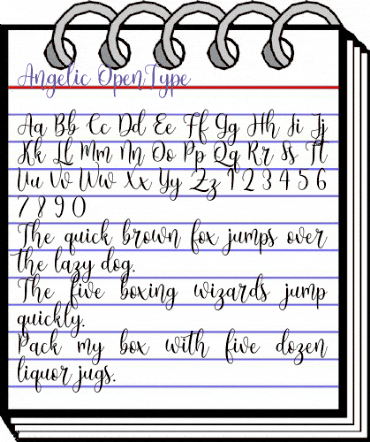 Angelic OpenType
Aa Bb Cc Dd Ee Ff Gg Hh Ii Jj
Kk Ll Mm Nn Oo Pp Qq Rr Ss Tt
Uu Vv Ww Xx Yy Zz 1 2 3 4 5 6
7 8 9 0
The quick brown fox jumps over
the lazy dog.
The five boxing wizards jump
quickly.
Pack my box with five dozen
liquor jugs.